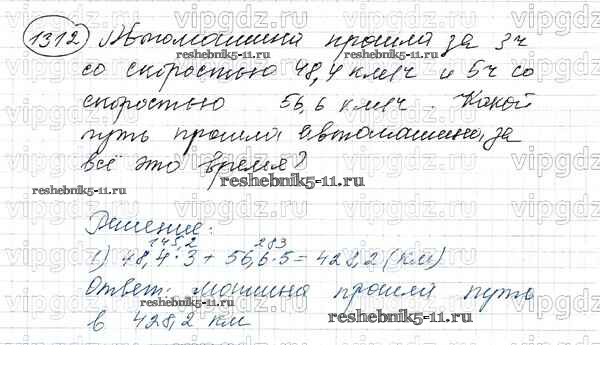 1312 Автомашина прошла за 3ч
со скоростью 48,4 км/ч и 5ч со
скоростью 56,6 км/ч. Какой
путь прошла автомашина, за
всё это время?
reshebnik5-11.ru
reshebnik5-11.ru
Решение:
145,2 283
1) 48,4·3 + 56,6·5 = 428,2 (км)
Ответ: машина прошла путь
в 428,2 км
reshebnik5-11.ru
reshebnik5-11.ru
vipgdz.ru